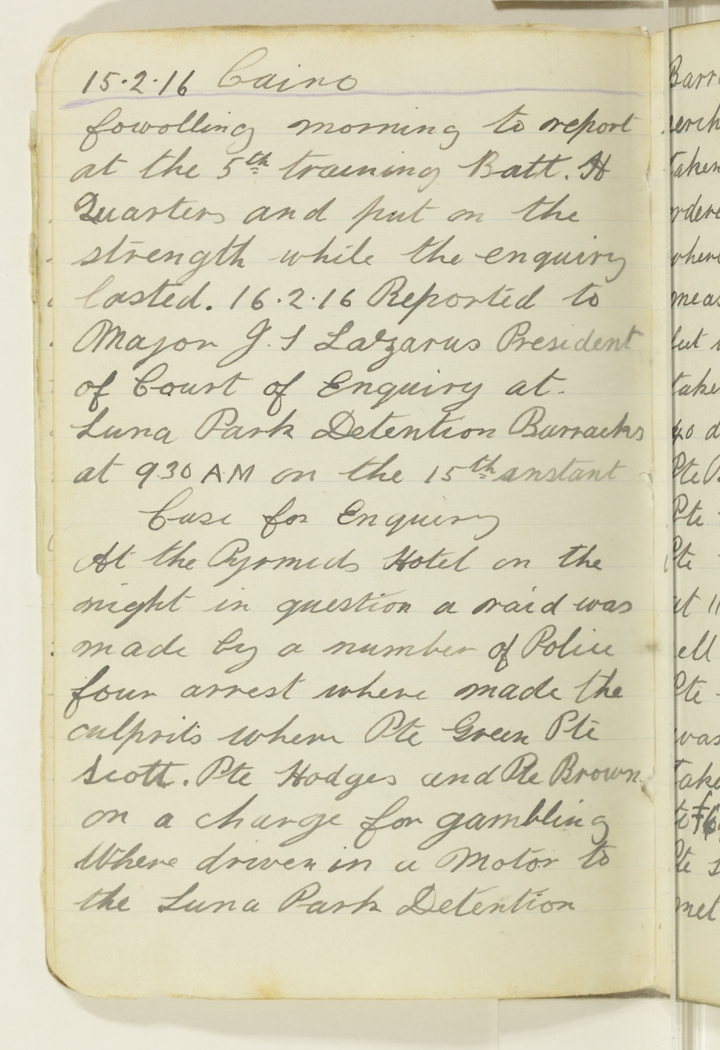 15.2.16 Cairo
fowolling morning to report
at the 5th training Batt. H
Quarters and put on the
strength while the enquiry
lasted. 16.2.16 Reported to
Major J. S Lazarus President
of Court of Enquiry at
Luna Park Detention Barracks
at 930 AM on the 15th instant
Case for Enquiry
At the Pyrmids Hotel on the
night in question a raid was
made by a number of Police
four arrest where made the
culprits where Pte Green Pte
Scott. Pte Hodges and Pte Brown
on a charge for gambling
Where driven in a Motor to
the Luna Park Detention